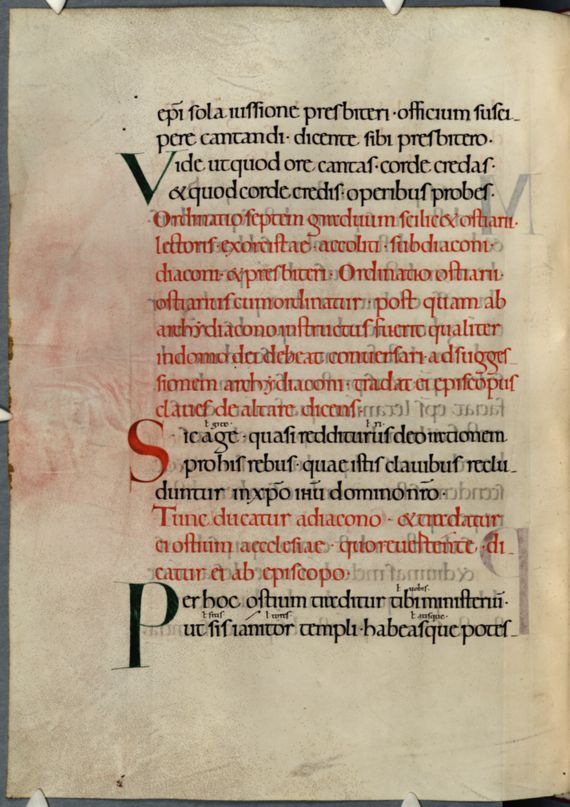 ep̄i sola iussione presbiteri · officium susci-
pere cantandi · dicente sibi presbitero ·
Vide ut quod ore cantas · corde credas ·
& quod corde credis · operibus probes ·
Ordinatio septem graduum scilic& ostiarii ·
lectoris · exorcistae · accoliti · subdiaconi ·
diaconi · & presbiteri · Ordinatio ostiarii ·
ostiarius cum ordinatur · post quam ab
archydiacono instructus fuerit qualiter
in domo dei debeat conversari · ad sugges-
sionem archydiaconi · tradat ei episcopus
claves de altare dicens ·
Sic age · quasi redditurus deo rationem
pro his rebus · quae istis clavibus reclu-
duntur in xp̄o ih̄u domino nr̄o ·
Tunc ducatur a diacono · & tradatur
ei ostium aecclesiae · quo revestente · di-
catur ei ab episcopo ·
Per hoc ostium traditur tibi ministeriū ·
ut sis ianitor templi · habeasque potes-